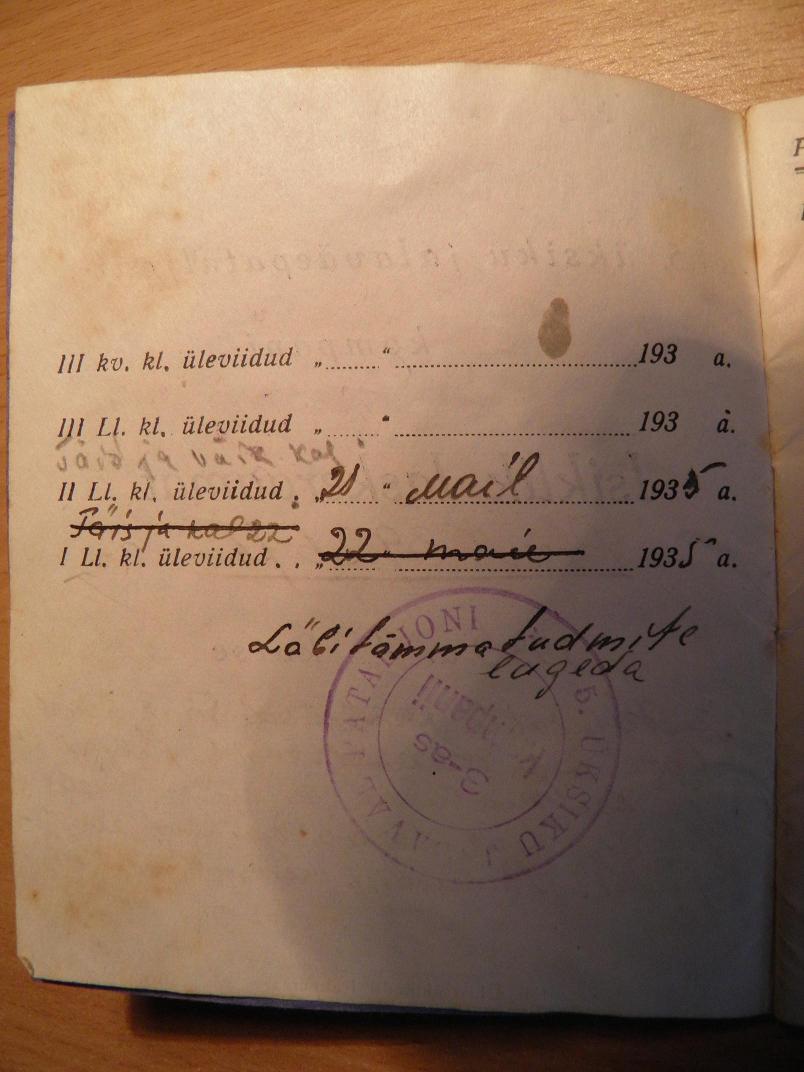 III kv. kl. üleviidud „........“ ........................ 193 a.
III Ll. kl. üleviidud „........“ ........................ 193 a.
Täis ja väik kal
II Ll. kl. üleviidud . „21“ mail 1935 a.
Täis ja kal 22
I Ll. kl. üleviidud . . „22“ 1935 a.
Läbi tõmmatud mite
lugeda
5. ÜKSIKU JALAVÄEPATALJONI
3-as
kompanii